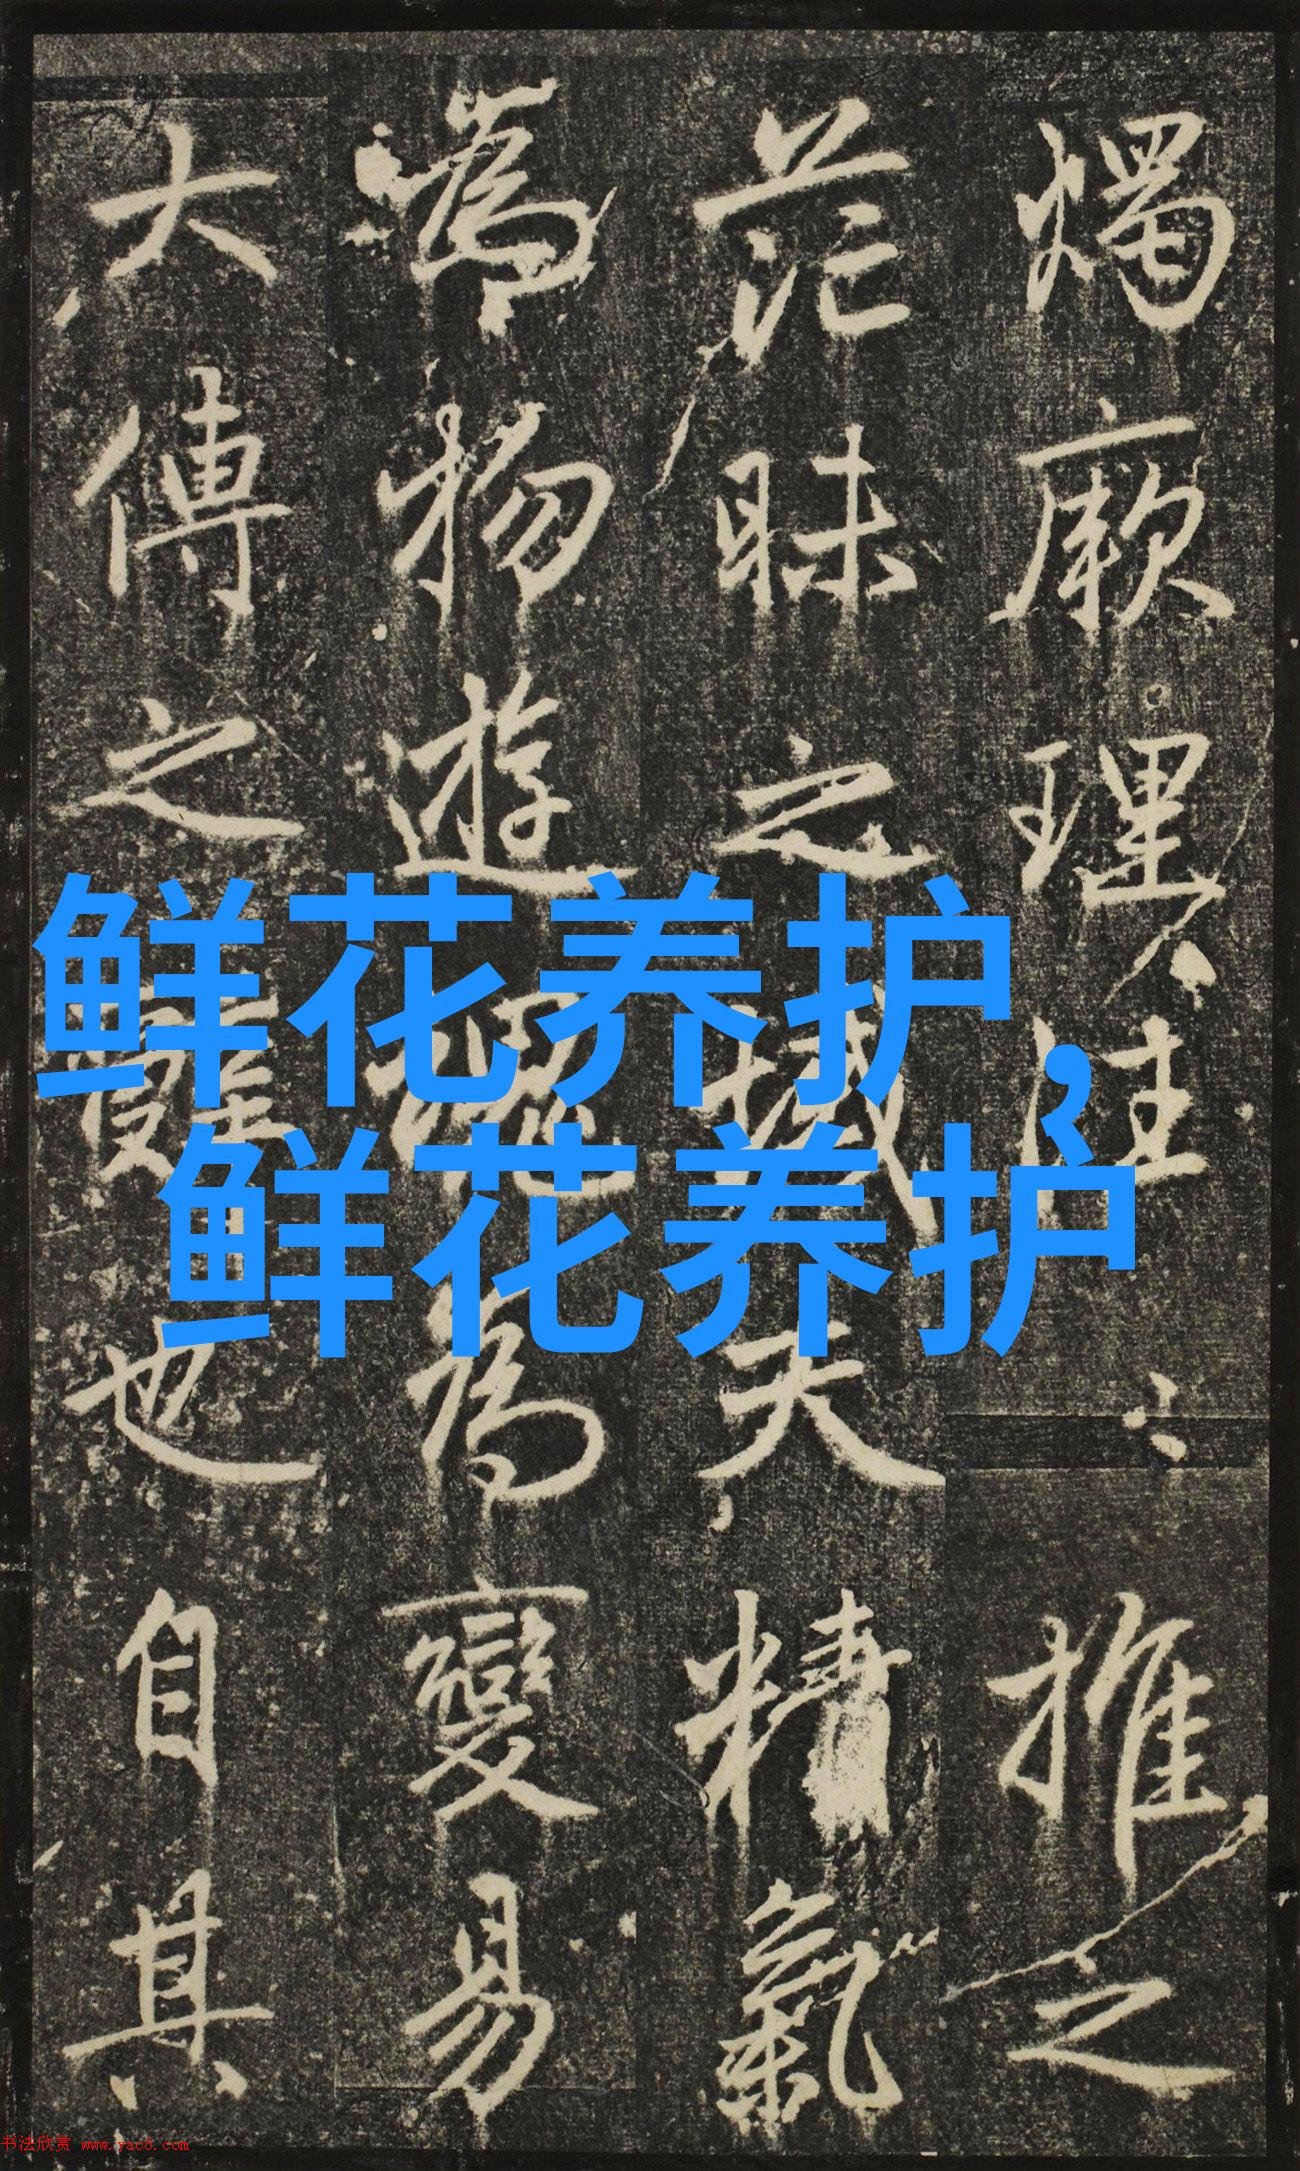 燭厥理往推之
茫昧之域夫精氣
為物遊魂為變易
大傳之也自其
鲜花养护，
鲜花养护
书法欣赏 www.yac8.com